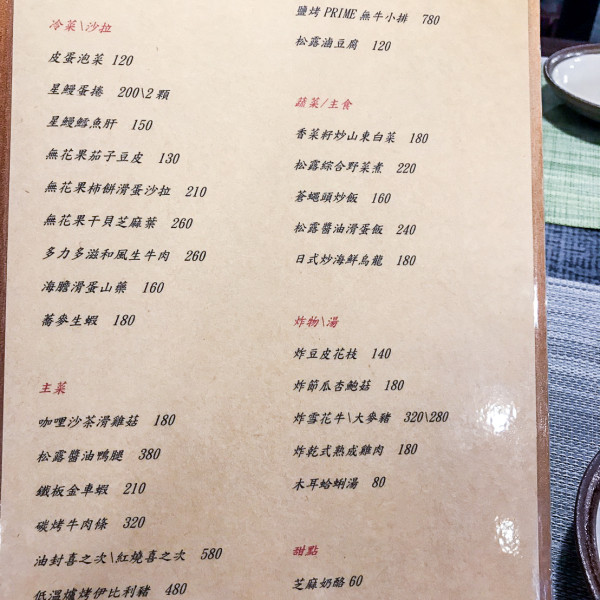 冷菜\沙拉
皮蛋泡菜 120
星鰻蛋捲 200\2 顆
星鰻鱈魚肝 150
無花果茄子豆皮 130
無花果柿餅滑蛋沙拉 210
無花果干貝芝麻葉 260
多力多滋和風生牛肉 260
海膽滑蛋山藥 160
蕎麥生蝦 180
主菜
咖哩沙茶滑雞菇 180
松露醬油鴨腿 380
鐵板金車蝦 210
碳烤牛肉條 320
油封喜之次\紅燒喜之次 580
低溫爐烤伊比利豬 480
鹽烤 PRIME 無牛小排 780
松露滷豆腐 120
蔬菜/主食
香菜籽炒山東白菜 180
松露綜合野菜煮 220
蒼蠅頭炒飯 160
松露醬油滑蛋飯 240
日式炒海鮮烏龍 180
炸物\湯
炸豆皮花枝 140
炸節瓜杏鮑菇 180
炸雪花牛\大麥豬 320\280
炸乾式熟成雞肉 180
木耳蛤蜊湯 80
甜點
芝麻奶酪 60